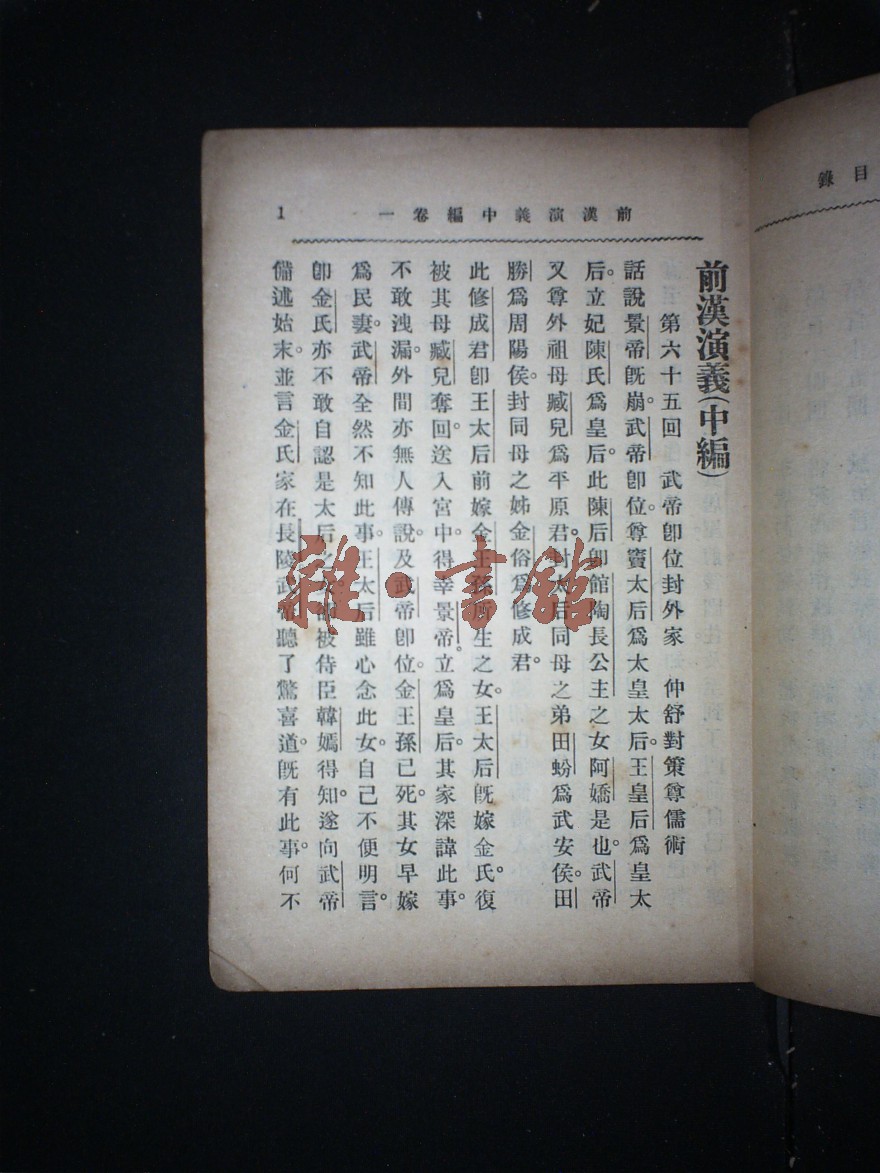 目錄
前漢演義中編卷一
1
前漢演義(中編)
第六十五回 武帝卽位封外家 仲舒對策尊儒術
話說景帝旣崩。武帝卽位。尊竇太后爲太皇太后。王皇后爲皇太
后。立妃陳氏爲皇后。此陳后卽館陶長公主之女阿嬌是也。武帝
又尊外祖母臧兒爲平原君。封太后同母之弟田蚡爲武安侯。田
勝爲周陽侯。封同母之姊金俗爲修成君。
此修成君卽王太后前嫁金王孫所生之女。王太后旣嫁金氏。復
被其母臧兒奪回。送入宮中。得幸景帝。立爲皇后。其家深諱此事。
不敢洩漏。外間亦無人傳說。及武帝卽位。金王孫已死。其女早嫁
爲民妻。武帝全然不知此事。王太后雖心念此女。自己不便明言。
卽金氏亦不敢自認是太后之女。被侍臣韓嫣得知。遂向武帝
備述始末。並言金氏家在長陵武帝聽了驚喜道。旣有此事。何不
雜·書館